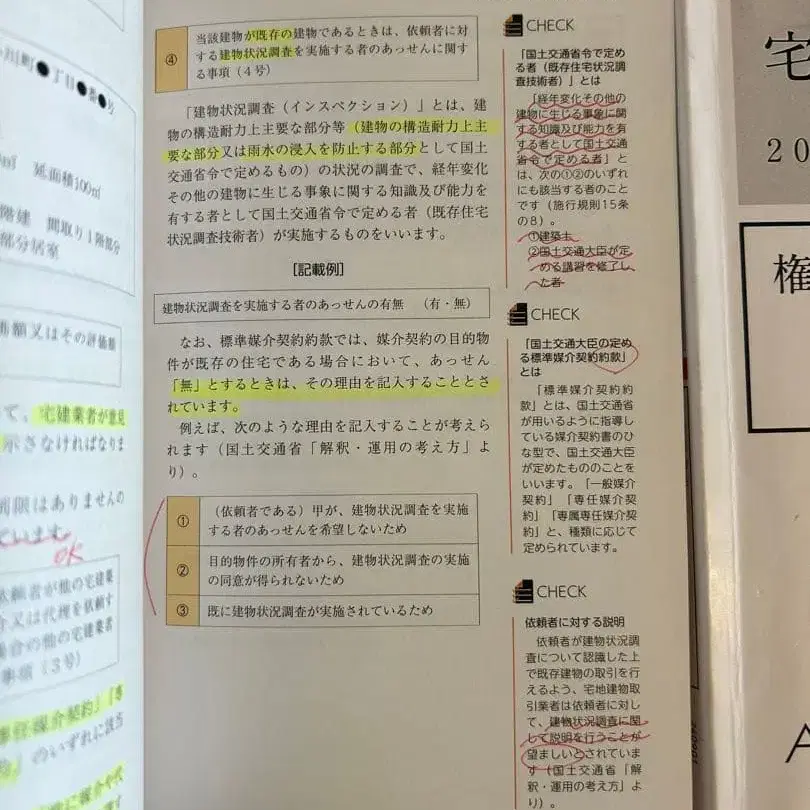 川町●丁目●番●号
延面積100㎡
階建 間取り1階部分
部分居室
価額又はその評価額
て、宅建業者が意見
示さなければなりま
制限はありませんの
ています。
OK
依頼者が他の宅建業
介又は代理を依頼す
場合の他の宅建業者
事項（3号）
専任媒介契約」「専
のいずれに該当
④
当該建物が既存の建物であるときは、依頼者に対
する建物状況調査を実施する者のあっせんに関す
る事項（4号）
「建物状況調査（インスペクション）」とは、建
物の構造耐力上主要な部分等（建物の構造耐力上主
要な部分又は雨水の浸入を防止する部分として国土
交通省令で定めるもの）の状況の調査で、経年変化
その他の建物に生じる事象に関する知識及び能力を
有する者として国土交通省令で定める者（既存住宅
状況調査技術者）が実施するものをいいます。
［記載例］
建物状況調査を実施する者のあっせんの有無 （有・無）
なお、標準媒介契約約款では、媒介契約の目的物
件が既存の住宅である場合において、あっせん
「無」とするときは、その理由を記入することとさ
れています。
例えば、次のような理由を記入することが考えら
れます（国土交通省「解釈・運用の考え方」よ
り）。
① （依頼者である）甲が、建物状況調査を実施
する者のあっせんを希望しないため
② 目的物件の所有者から、建物状況調査の実施
の同意が得られないため
③ 既に建物状況調査が実施されているため
CHECK
「国土交通省令で定め
る者（既存住宅状況調
査技術者）」とは
「経年変化その他の
建物に生じる事象に関
する知識及び能力を有
する者として国土交通
省令で定める者」と
は、次の①②のいずれ
にも該当する者のこと
です（施行規則15条
の8）。
①建築士
②国土交通大臣が定
める講習を修了し
た者
CHECK
「国土交通大臣の定め
る標準媒介契約約款」
とは
「標準媒介契約約
款」とは、国土交通省
が用いるように指導し
ている媒介契約書のひ
な型で、国土交通大臣
が定めたもののことを
いいます。「一般媒介
契約」「専任媒介契
約」「専属専任媒介契
約」と、種類に応じて
定められています。
CHECK
依頼者に対する説明
依頼者が建物状況調
査について認識した上
で既存建物の取引を行
えるよう、宅地建物取
引業者は依頼者に対し
て、建物状況調査に関
して説明を行うことが
望ましいとされていま
す（国土交通省「解
釈・運用の考え方」よ
り）。
宅
20
権
A